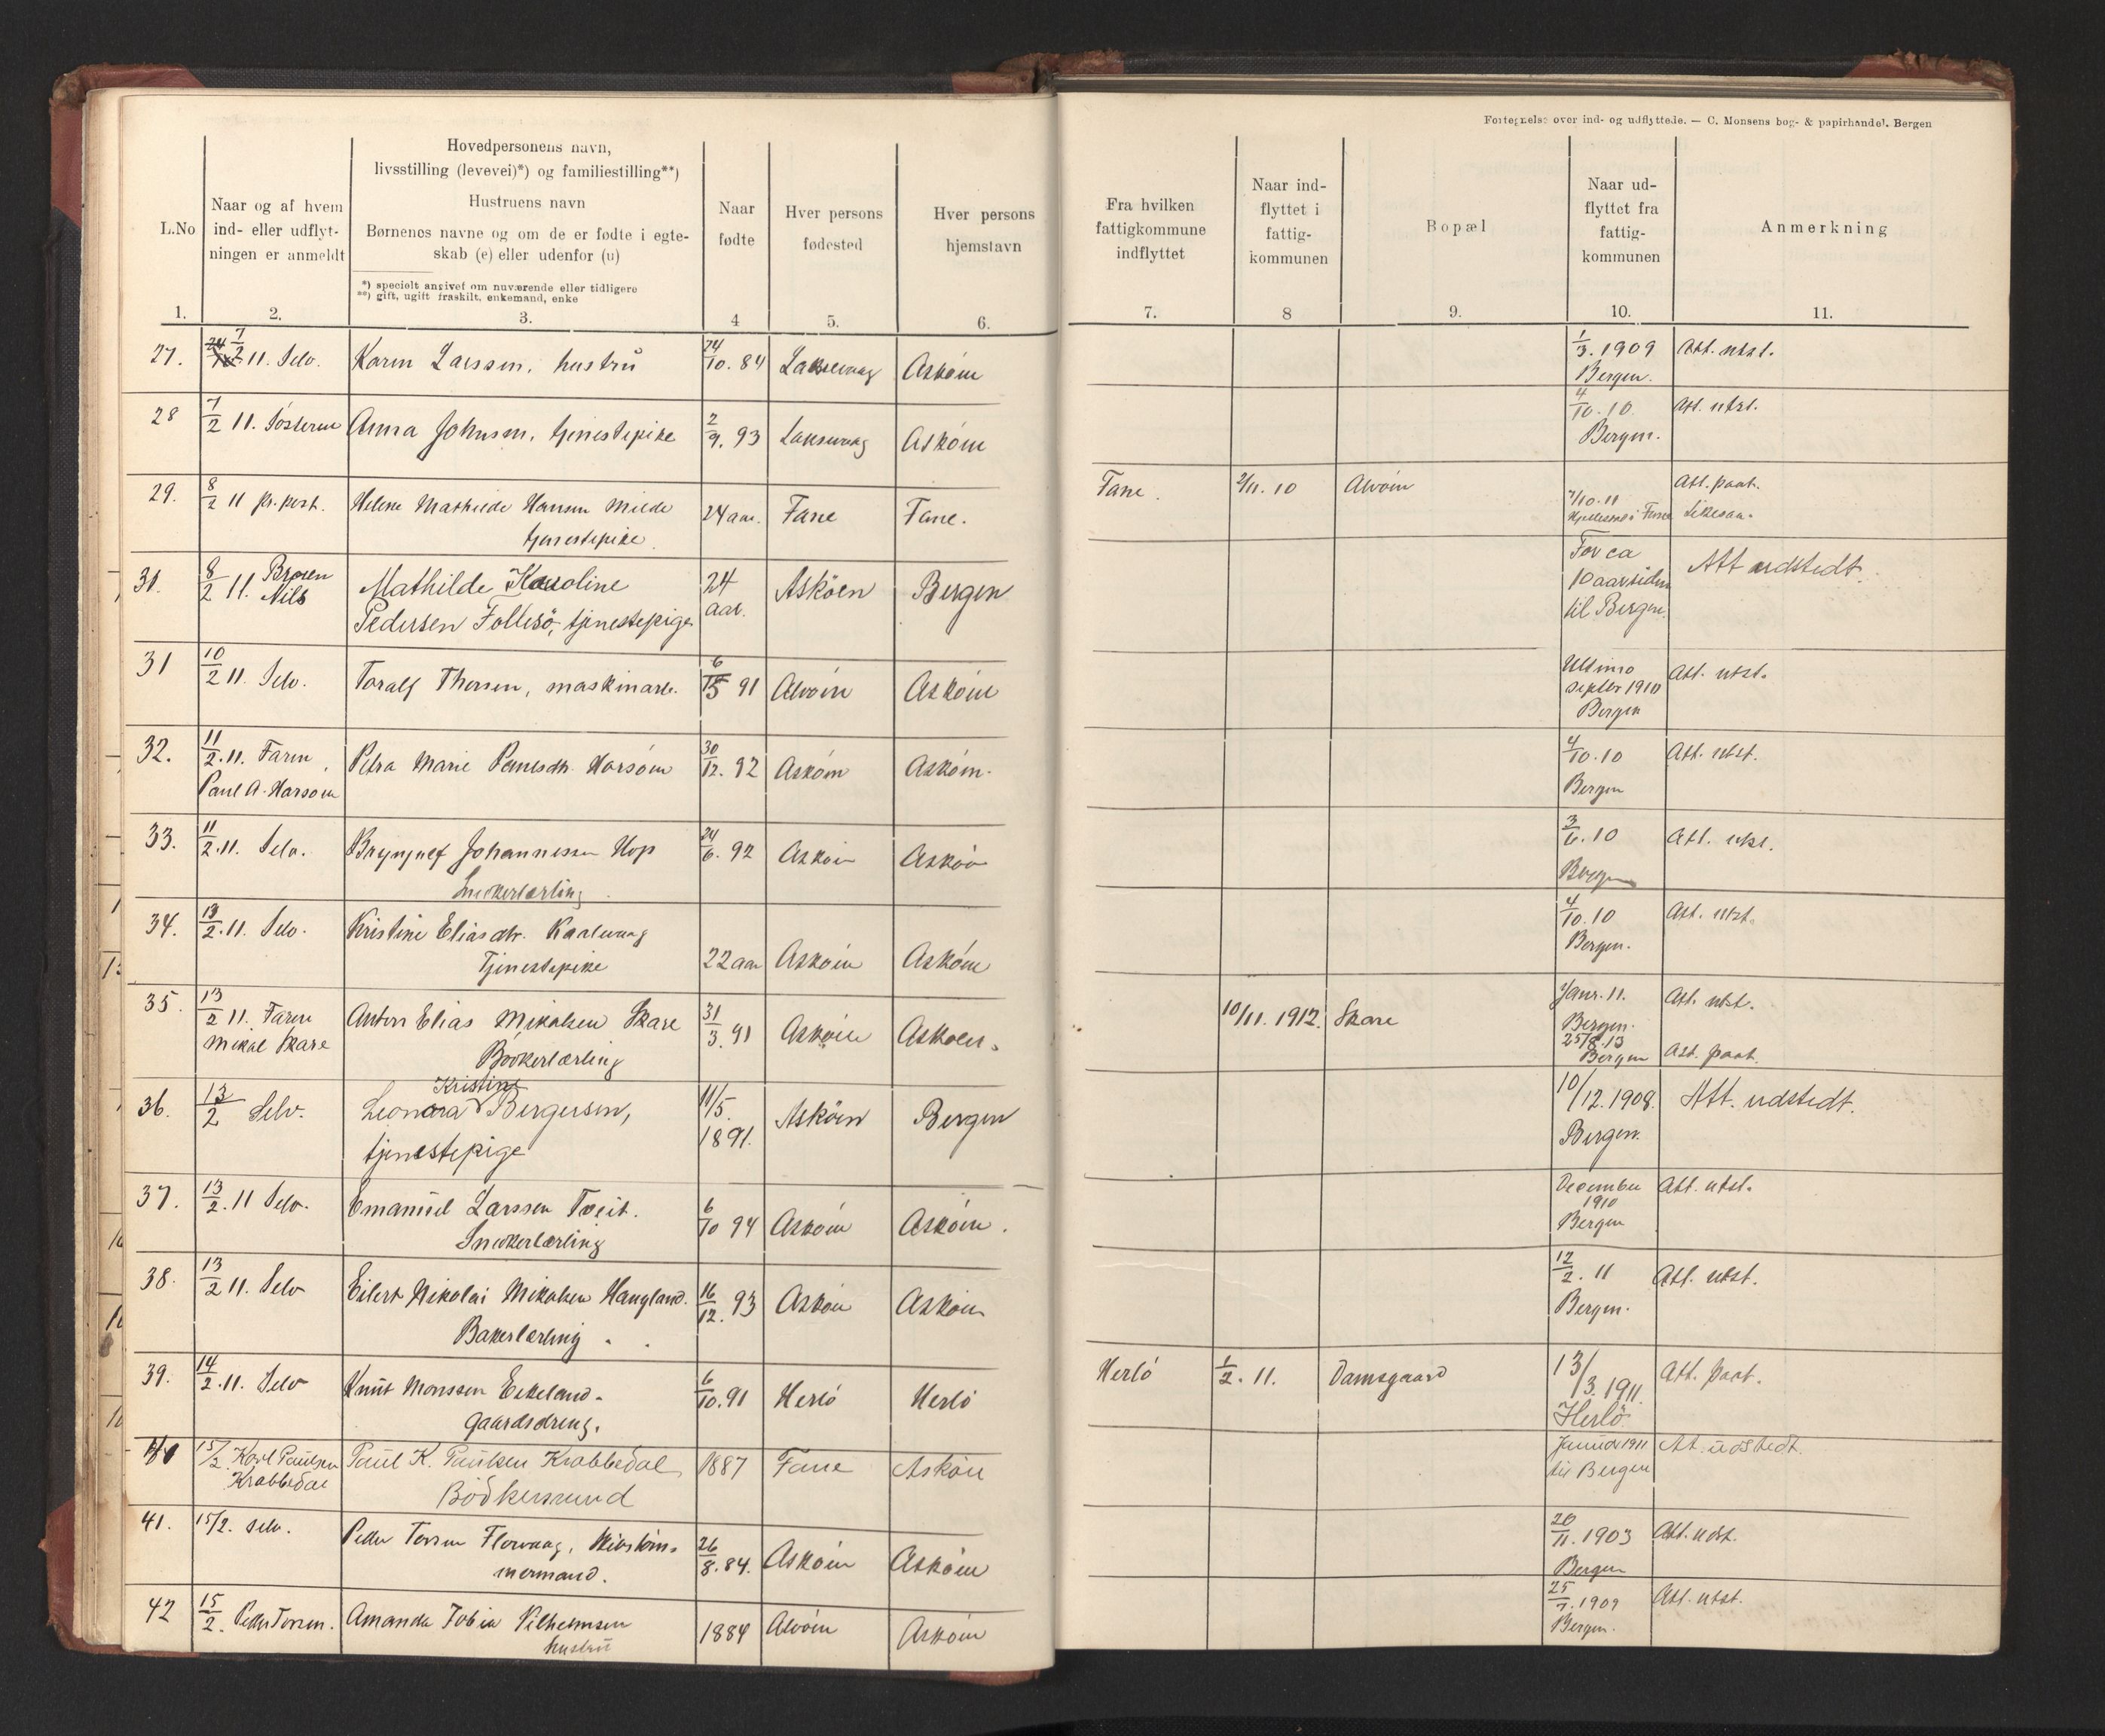 Fortegnelse over ind- og udflyttede. — C. Monsens bog- & papirhandel. Bergen
L.No
Naar og af hvem
ind- eller udflyt-
ningen er anmeldt
Hovedpersonens navn,
livsstilling (levevei)*) og familiestilling**)
Hustruens navn
Børnenes navne og om de er fødte i egte-
skab (e) eller udenfor (u)
*) specielt angivet om nuværende eller tidligere
**) gift, ugift fraskilt, enkemand, enke
Naar
fødte
Hver persons
fødested
Hver persons
hjemstavn
Fra hvilken
fattigkommune
indflyttet
Naar ind-
flyttet i
fattig-
kommunen
Bopæl
Naar ud-
flyttet fra
fattig-
kommunen
Anmerkning
1. 2. 3. 4 5. 6. 7. 8 9. 10. 11.
27. 7/2 11. Selv. Karen Larssen, hustru 24/10. 84 Laksevaag Askøen 1/3. 1909 Att. utst.
Bergen.
28 7/2 11. Søsteren Anna Johnsen, tjenestepike 2/9. 93 Laksevaag Askøen 4/10. 10. Att. utst.
Bergen.
29. 8/2 11 pr. post. Helene Mathilde Hansen Milde 24 aar. Fane Fane. Fane. 2/11. 10 Alvøen 1/10. 11 Att. paat.
tjenestepike i Fane
30. 8/2 11. Broren Nils Mathilde Karoline 24 aar. Askøen Bergen For ca Att udstedt.
Pedersen Follesø, tjenestepige 10 aar siden
til Bergen.
31 10/2 11. Selv. Toralf Thorsen, maskinarb. 6/5 91 Alvøen Askøen Ultimo Att. utst.
septbr 1910
Bergen
32. 11/2. 11. Faren, Petra Marie Paulsdtr. Harsøen 30/12. 92 Askøen Askøen. 4/10. 10 Att. utst.
Paul A. Harsøen Bergen
33. 11/2. 11. Selv. Brynjulf Johannessen Hop 24/6. 92 Askøen Askøen 3/6. 10 Att. utst.
Snekkerlærling Bergen
34. 13/2. 11. Selv. Kristine Eliasdtr. 4/10. 10 Att. utst.
Tjenestepike 22 aar Askøen Askøen Bergen.
35. 13/2 11. Faren Anton Elias Mikalsen Skare 31/3. 91 Askøen Askøen. 10/11. 1912. Skare Janr. 11. Att. utst.
Mikal Skare Bødkerlærling Bergen.
25/8. 13
Bergen Att. paat.
36. 13/2 Selv. Leonora Kristine Bergersen, 11/5. 1891. Askøen Bergen 10/12. 1908. Att. udstedt.
tjenestepige Bergen.
37. 13/2. 11 Selv. Emanuel Larssen Tveit. 6/10 94 Askøen Askøen. December Att. utst.
Snekkerlærling 1910
Bergen
38. 13/2 11. Selv Eilert Nikolai Mikalsen Haugland. 16/12. 93 Askøen Askøen 12/2. 11 Att. utst.
Bakerlærling Bergen.
39. 14/2. 11. Selv Knut Monssen Eikeland. 6/10. 91 Herlø Herlø Herlø 1/2. 11. Damsgaard 13/3. 1911. Att. paat.
Gaardsdreng. Herlø
40 15/2 Karl Paulsen Paul K. Paulsen Krabbedal, 1887 Fane Askøen Januar 1911 At. udstedt.
Krabbedal Bødkersvend til Bergen
41. 15/2. selv. Peder Torsen Florvaag, Skibstøm- 26/8. 84. Askøen Askøen 20/11. 1903 Att. udst.
mermand. Bergen
42 15/2. Peder Torsen. Amanda Tobia Vilhelmsen 1884 Alvøen Askøen 25/7. 1909 Att. utst.
hustru Bergen.